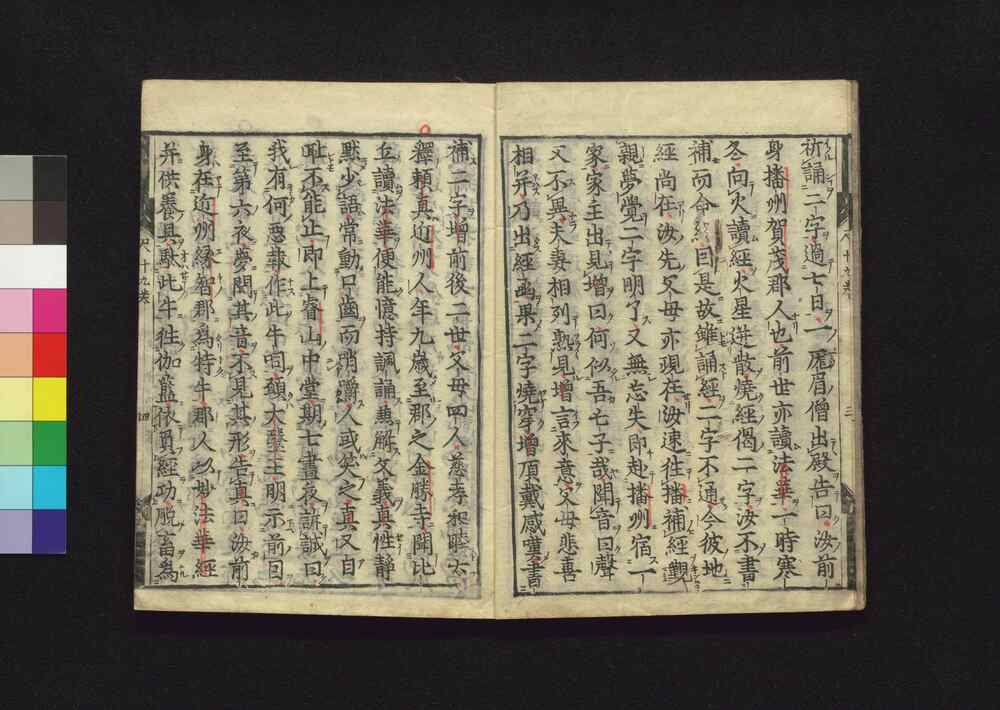 祈誦二字過七日一厖眉僧出殿告曰汝前
身播州賀茂郡人也前世亦讀法華一時寒
冬向火讀經火星迸散燒經偈二字汝不書
補而命終因是故雖誦經二字不通今彼地
經尚在汝先父母亦現在汝速徃播補經覲
親夢覺二字明了又無忘失即赴播州宿一
家家主出見增曰何似吾亡子哉聞音曰聲
又不異夫妻相列熟見增言來意父母悲喜
相并乃出經函果二字燒穿增頂戴感嘆書
補二字增前後二世父母四人慈孝和睦云
釋賴真近州人年九歳至郡之金勝寺聞比
丘讀法華便能憶持諷誦兼解文義真性靜
默少語常動口齒而𠯗嚼人或笑之真又自
恥不能止即上睿山中堂期七晝夜訴誠曰
我有何惡報作此牛呞頟大醫王明示前因
至第六夜夢聞其音不見其形告真曰汝前
身在近州緣智郡為特牛郡人以妙法華經
并供養具駄此牛徃伽藍依負經功脫畜為
尺十九卷
四